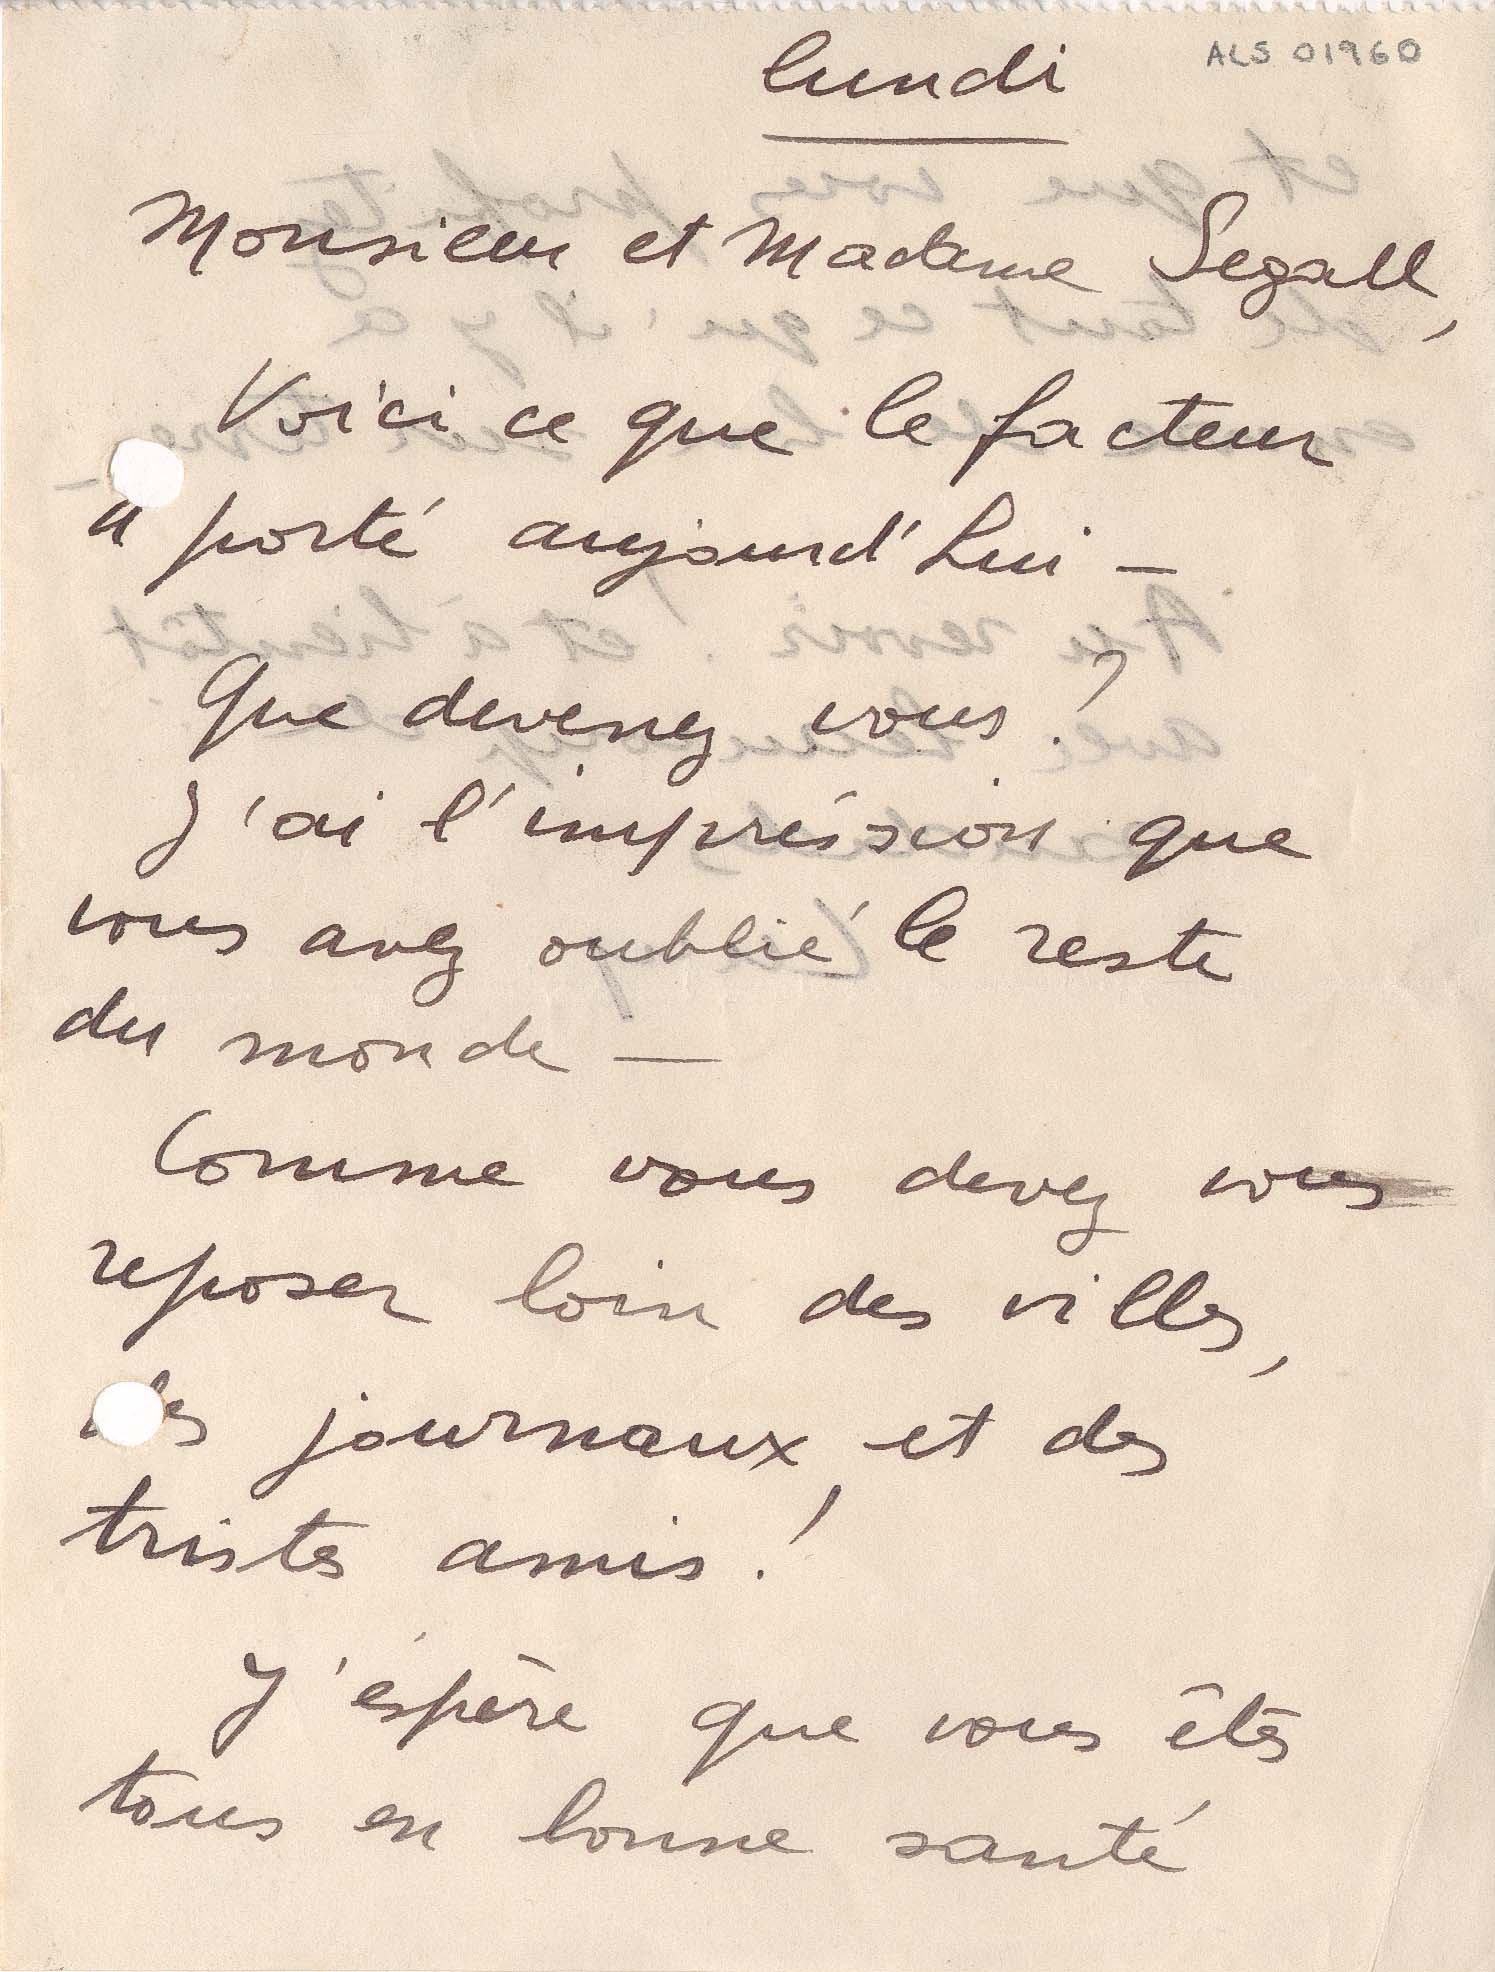 lundi
ALS 01960
Monsieur et Madame Segall,
Voici ce que le facteur
a porté aujourd'hui —
Que devenez vous ?
J'ai l'impréssion que
vous avez oublié le reste
du monde —
Comme vous devez vous
reposer loin des villes,
des journaux, et des
tristes amis !
J'éspère que vous êtes
tous en bonne santé